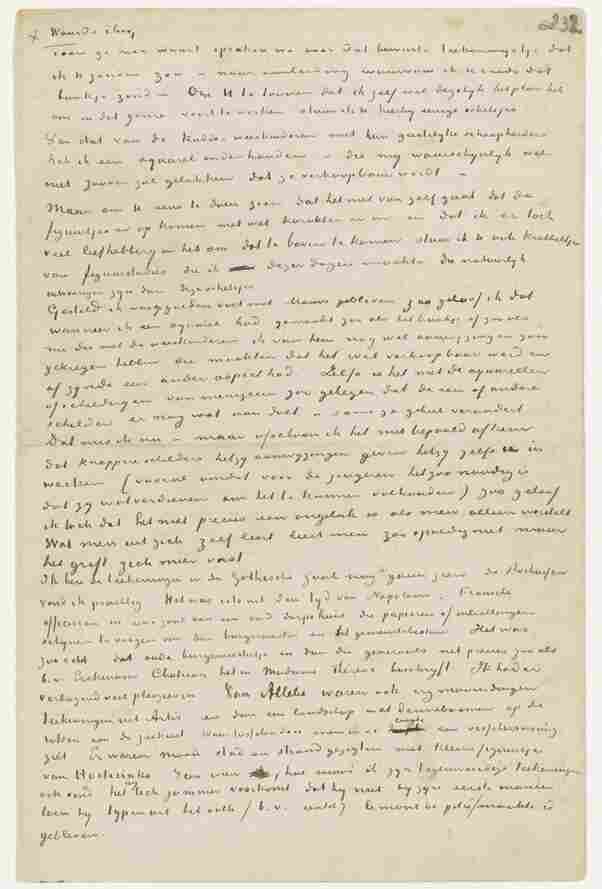 232
Waarde Theo,
Toen ge nog waart spraken we over dat bewuste teekeningetje dat
ik U zenden zou naar aanleiding waarvan ik U reeds dat
bankje zond Om U te toonen dat ik zelf wel degelijk het plan heb
om in dat genre voort te werken stuur ik U hierbij eenige schetsjes
Van dat van de kudde weeskinderen met hun geestelijke schaapherders
heb ik een aquarel onder handen die mij waarschijnlijk wel
niet zoover zal gelukken dat ze verkoopbaar wordt
Maar om U eens te doen zien dat het niet van zelf gaat dat de
figuurtjes er op komen met wat karakter en dat ik er toch
veel liefhebberij in heb om dat te boven te komen stuur ik U ook krabbeltjes
van figuurstudies die ik dezer dagen maakte die natuurlijk
zijn dan deze schetsjes
Gesteld ik op goeden voet met Mauve gebleven zoo geloof ik dat
wanneer ik een aquarel had gemaakt zoo als het bankje of zoo als
nu die met de weeskinderen ik van hem nog wel aanwijzingen zou
gekregen hebben die maakten dat het wel verkoopbaar werd en
of zoodoende een ander aspect had. Zelfs is het met de aquarellen
of schilderijen van menigeen zoo gelegen dat de een of andere
schilder er nog wat aan doet soms ze geheel verandert
Dat mis ik nu maar ofschoon ik het niet bepaald afkeur
dat knappere schilders hetzij aanwijzingen geven hetzij zelfs er in
werken (vooral omdat voor de jongeren het zoo noodig is
dat zij wat verdienen om het te kunnen volhouden) zoo geloof
ik toch dat het niet precies een ongeluk is als men alleen worstelt
Wat men uit zich zelf leert leert men zoo spoedig niet maar
het grift zich meer vast.
Ik heb de teekeningen in de Gothische zaal nog gaan zien de Rochussen
vond ik prachtig Het was iets uit den tijd van Napoleon. Fransche
officieren in een zaal van een oud dorpshuis die papieren of inlichtingen
schijnen te vragen van den burgemeester en het gemeentebestuur Het was
zoo echt dat oude burgemeestertje en dan die generaals net precies zoo als
b.v. Erckmann Chatrian het in Madame Thérèse beschrijft. Ik had er
verbazend veel pleizier in Van Allebé waren ook erg merkwaardige
teekeningen uit Artis en dan een landschap met denneboomen op de
rotsen aan de zeekust Van Bosboom een een enkele een verscheidenheid
ziet Er waren mooie stad en strandgezigten met kleine figuurtjes
van Hoeterickx
ook vond het toch jammer voorkomt dat hij niet bij zijn eerste manier
toen hij typen uit het volk b.v. uit het Mont de piété maakte is
gebleven.